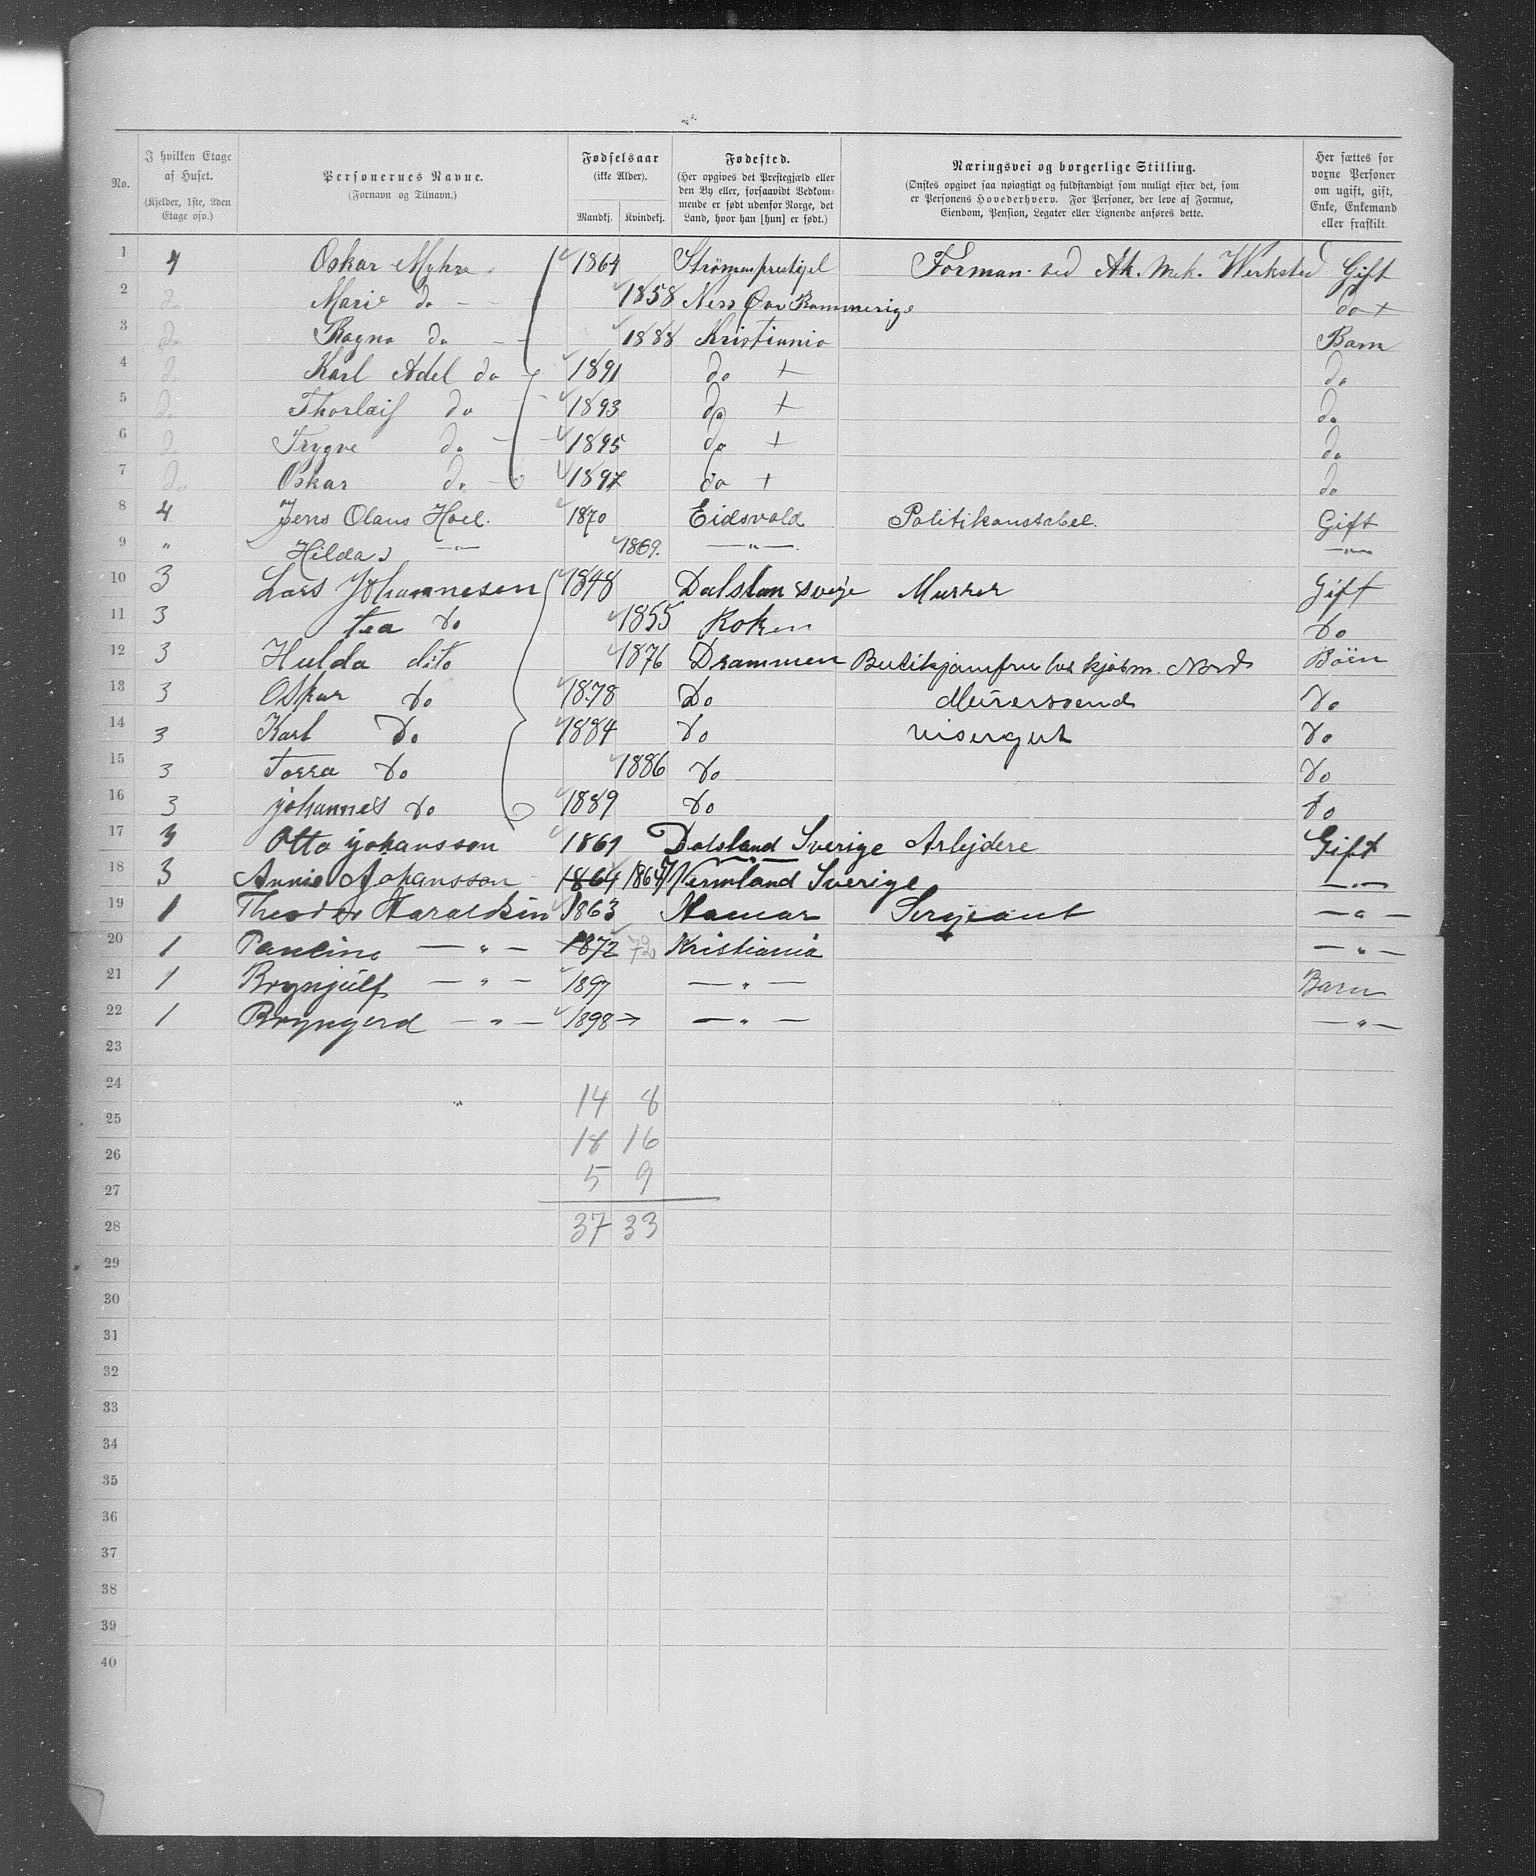 No. | I hvilken Etage af Huset. (Kjelder, 1ste, 2den Etage osv.) | Personernes Navne. (Fornavn og Tilnavn.) | Fødselsaar (ikke Alder). Mandkj. Kvindekj. | Fødested. (Her opgives det Prestegjæld eller den By eller, forsaavidt Vedkommende er født udenfor Norge, det Land, hvor han [hun] er født.) | Næringsvei og borgerlige Stilling. (Ønskes opgivet saa nøiagtigt og fuldstændigt som muligt efter det, som er Personens Hovederhverv. For Personer, der leve af Formue, Eiendom, Pension, Legater eller Lignende anføres dette.) | Her sættes for voxne Personer om ugift, gift, Enke, Enkemand eller fraskilt.
1 4 Oskar Myhre 1864 Strømmen prestigel Forman ved Ak. Mek. Werksted Gift
2 do Marie do 1858 Ness Øvr Rommerige do +
3 do Ragna do 1888 Kristiania Barn
4 do Karl Adel do 1891 do + do
5 do Thorleif do 1893 do + do
6 do Trygve do 1895 do + do
7 do Oskar do 1897 do + do
8 4 Jens Olaus Hoel. 1870 Eidsvold Politikonstabel. Gift
9 " Hilda —"— 1869. —"— —"—
10 3 Lars Johannesen 1848 Dalslan sverje Murer Gift
11 3 tea do 1855 Roken do
12 3 Hulda dito 1876 Drammen Butikjomfru hos kjøbm. Nord Böen
13 3 Oskar do 1878 Do Murersvend do
14 3 Karl do 1884 do visergut do
15 3 Torra do 1886 do do
16 3 johannes do 1889 do do
17 3 Otto johansson 1861 Dalsland Sverige Arbejdere Gift
18 3 Annie Johansson 1864 1867 Vermland Sverige —"—
19 1 Theodor Haraldsen 1863 Hamar Sergeant —"—
20 1 Pauline —"— 1872 72 Kristiania —"—
21 1 Brynjulf —"— 1897 —"— Barn
22 1 Bryngerd —"— 1898 → —"— —"—
23
24
14 8
25
18 16
26
5 9
27
37 33
28
29
30
31
32
33
34
35
36
37
38
39
40